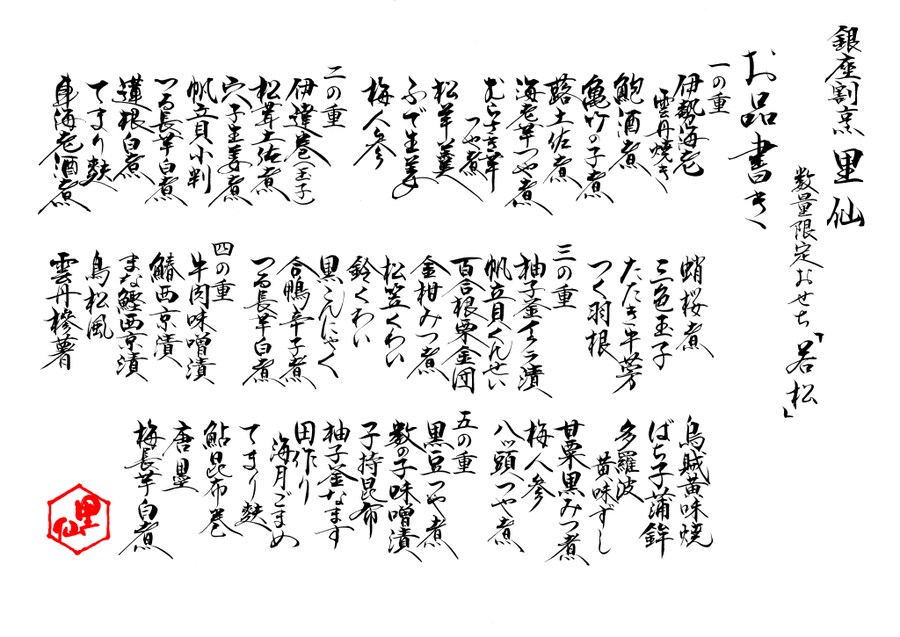 銀座割烹 里仙
数量限定おせち「若松」
お品書き
一の重
伊勢海老
雲丹焼き
鮑酒煮
亀竹の子煮
蕗土佐煮
海老芋つや煮
むらさき芋
つや煮
松羊羹
ふで生姜
梅人参
二の重
伊達巻(玉子)
松茸土佐煮
穴子生姜煮
帆立貝小判
つる長芋白煮
蓮根白煮
てまり麸
車海老酒煮
蛸桜煮
三色玉子
たたき牛蒡
つく羽根
三の重
柚子釜イクラ漬
帆立貝くんせい
百合根栗金団
金柑みつ煮
松笠くわい
鈴くわい
黒こんにゃく
合鴨辛子煮
つる長芋白煮
四の重
牛肉味噌漬
鰆西京漬
まな鰹西京漬
鳥松風
雲丹摻薯
烏賊黄味焼
ばち子蒲鉾
多羅波
黄味ずし
甘栗黒みつ煮
梅人参
八ッ頭つや煮
五の重
黒豆つや煮
数の子味噌漬
子持昆布
柚子釜なます
田作り
海月ごまめ
てまり麸
鮎昆布巻
唐墨
梅長芋白煮
里仙